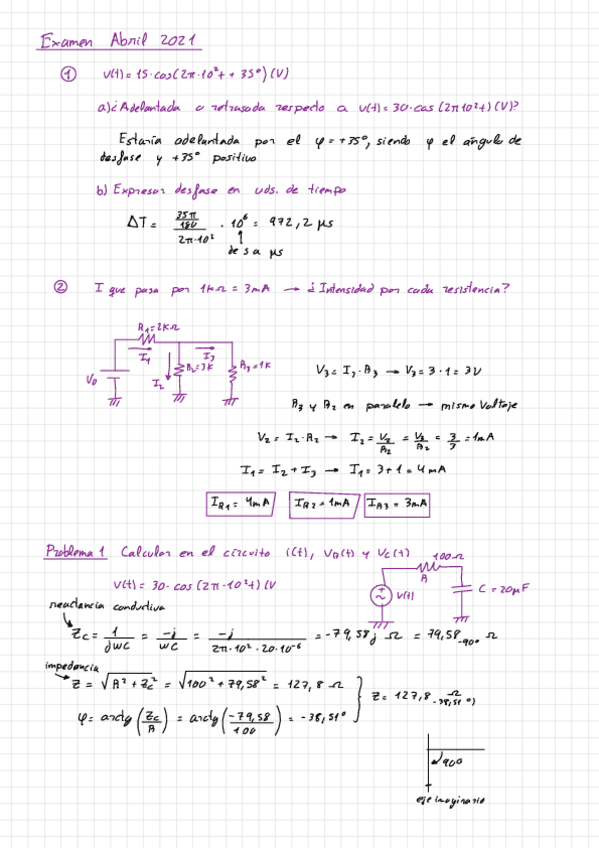 Examen Abril 2021
① v(t) = 15·cos(2π·10²t + 35°) (V)
a) ¿Adelantada o retrasada respecto a v(t) = 30·cos(2π10²t) (V)?
Estaría adelantada por el φ = +35°, siendo φ el ángulo de
desfase y +35° positivo
b) Expresar desfase en uds. de tiempo
ΔT = (35π/180)/(2π·10²) · 10⁶ = 972,2 μs
de s a μs
② I que pasa por 1kΩ = 3mA → ¿Intensidad por cada resistencia?
R₁=2kΩ
I₁
I₃
V₀
I₂
R₂=3K
R₃=1K
V₃ = I₃·R₃ → V₃ = 3·1 = 3V
R₃ y R₂ en paralelo → mismo Voltaje
V₂ = I₂·R₂ → I₂ = V₂/R₂ = V₃/R₂ = 3/3 = 1mA
I₁ = I₂ + I₃ → I₁ = 3+1 = 4mA
I_R1 = 4mA
I_R2 = 1mA
I_R3 = 3mA
Problema 1 Calcular en el circuito i(t), V_R(t) y V_C(t)
100Ω
R
V(t)
C = 20μF
V(t) = 30·cos(2π·10²t) (V
reactancia conductiva
Z_C = 1/jWC = -j/WC = -j/(2π·10²·20·10⁻⁶) = -79,58j Ω = 79,58 -90° Ω
impedancia
Z = √(R² + Z_C²) = √(100² + 79,58²) = 127,8 Ω
Z = 127,8 -38,51° Ω
φ = arctg(Z_C/R) = arctg(-79,58/100) = -38,51°
90°
eje imaginario